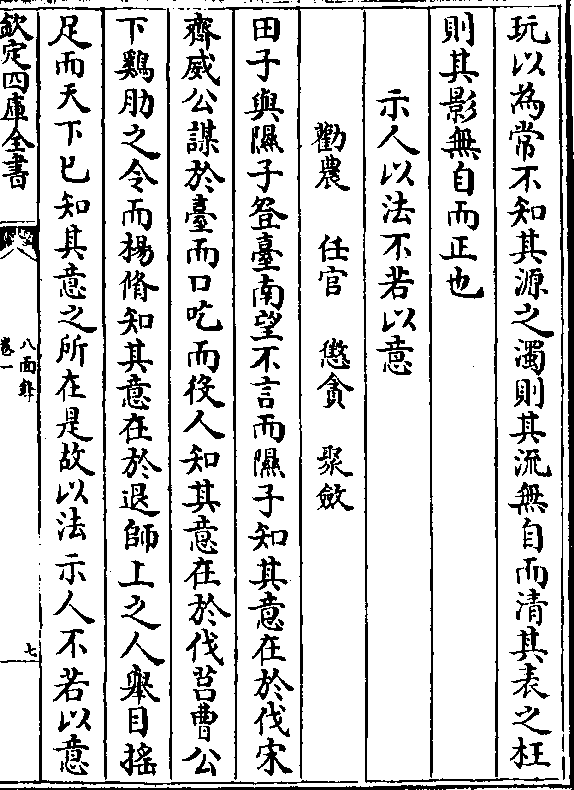 玩以為常不知其源之濁則其流無自而清其表之枉
則其影無自而正也
示人以法不若以意
勸農 任官 懲貪 聚斂
田子與隰子登臺南望不言而隰子知其意在於伐宋
齊威公謀於臺而口吃而役人知其意在於伐莒曹公
下鷄肋之令而楊脩知其意在於退師上之人舉目搖
足而天下已知其意之所在是故以法示人不若以意
欽定四庫全書
八面鋒
卷一
七